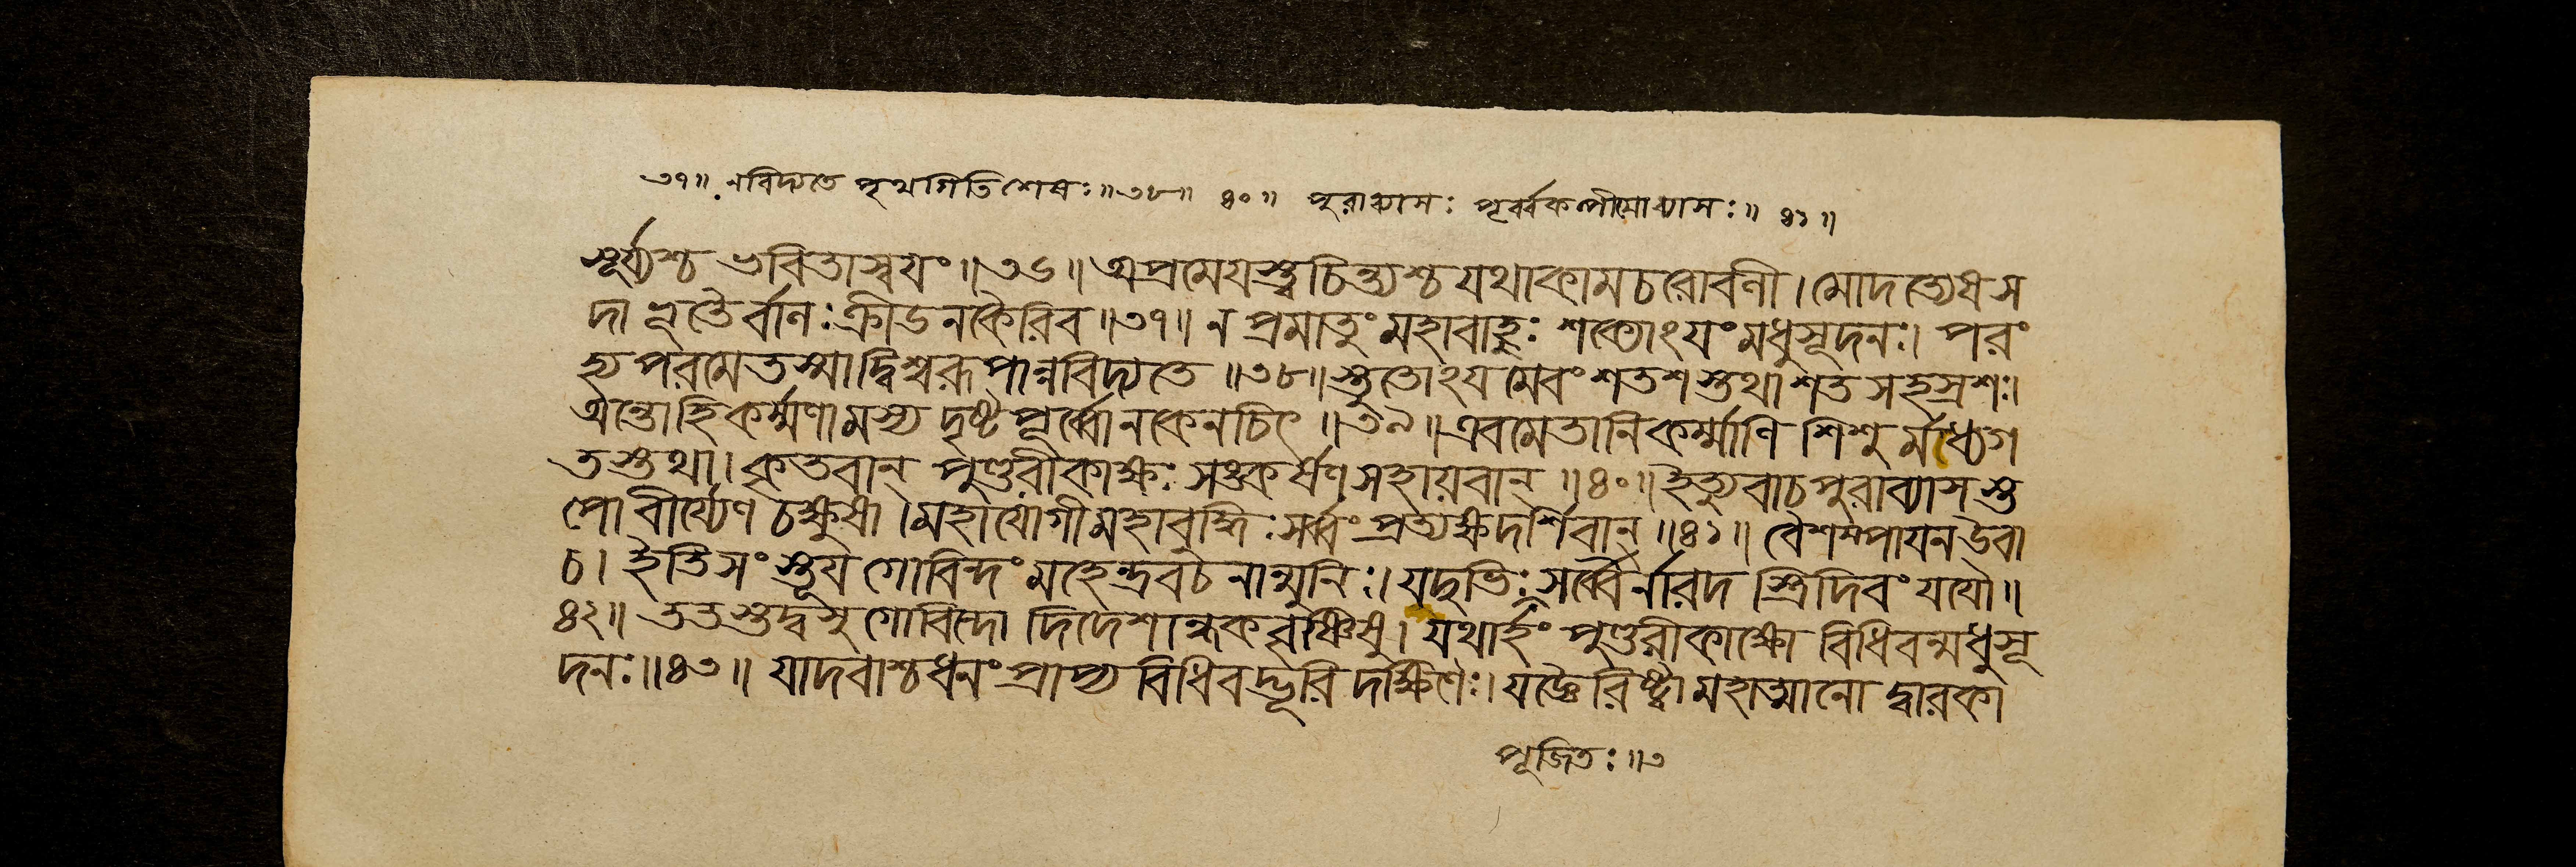 ৩৭॥ নবিদ্যতে পৃথগিতিশেষঃ॥৩৮॥ ৪০॥ পুরাব্যাসঃ পূর্ব্বকল্পীয়োব্যাসঃ॥ ৪১॥
সূর্য্যশ্চ ভবিতাস্বযং॥৩৬॥ অপ্রমেযস্ত্বচিন্ত্যশ্চ যথাকামচরোবশী। মোদত্যেষস
দা ভূতৈর্বালঃক্রীডনকৈরিব॥৩৭॥ ন প্রমাতুং মহাবাহুঃ শক্যোঽযং মধুসূদনঃ। পরং
হ্য পরমেতস্মাদ্বিশ্বরূপান্নবিদ্যতে ॥৩৮॥ স্তুতোঽয মেবং শতশ স্তথা শত সহস্রশঃ।
অন্তোহিকর্ম্মণামস্য দৃষ্ট পূর্ব্বোনকেনচিৎ ॥৩৯॥ এবমেতানিকর্ম্মাণি শিশু র্মধ্যেগ
তস্তথা। কৃতবান্ পুণ্ডরীকাক্ষঃ সঙ্কর্ষণ সহায়বান্ ॥৪০॥ ইত্যুবাচপুরাব্যাসস্ত
পোবীর্য্যেণ চক্ষুষা। মহাযোগীমহাবুদ্ধিঃসর্ব্বং প্রত্যক্ষদর্শিবান্ ॥৪১॥ বৈশম্পাযনউবা
চ। ইতিসং স্তূয গোবিন্দং মহেন্দ্রবচনান্মুনিঃ। যদুভিঃসর্ব্বৈর্নারদ স্ত্রিদিবং যযৌ॥
৪২॥ ততস্তদ্বসু গোবিন্দো দিদেশান্ধকবৃষ্ণিষু। যথার্হং পুণ্ডরীকাক্ষো বিধিবন্মধুসূ
দনঃ॥৪৩॥ যাদবাশ্চধনং প্রাপ্য বিধিবদ্ভূরি দক্ষিণৈঃ। যজ্ঞৈরিষ্ট্বা মহাত্মানো দ্বারকা
পূজিতঃ॥৩